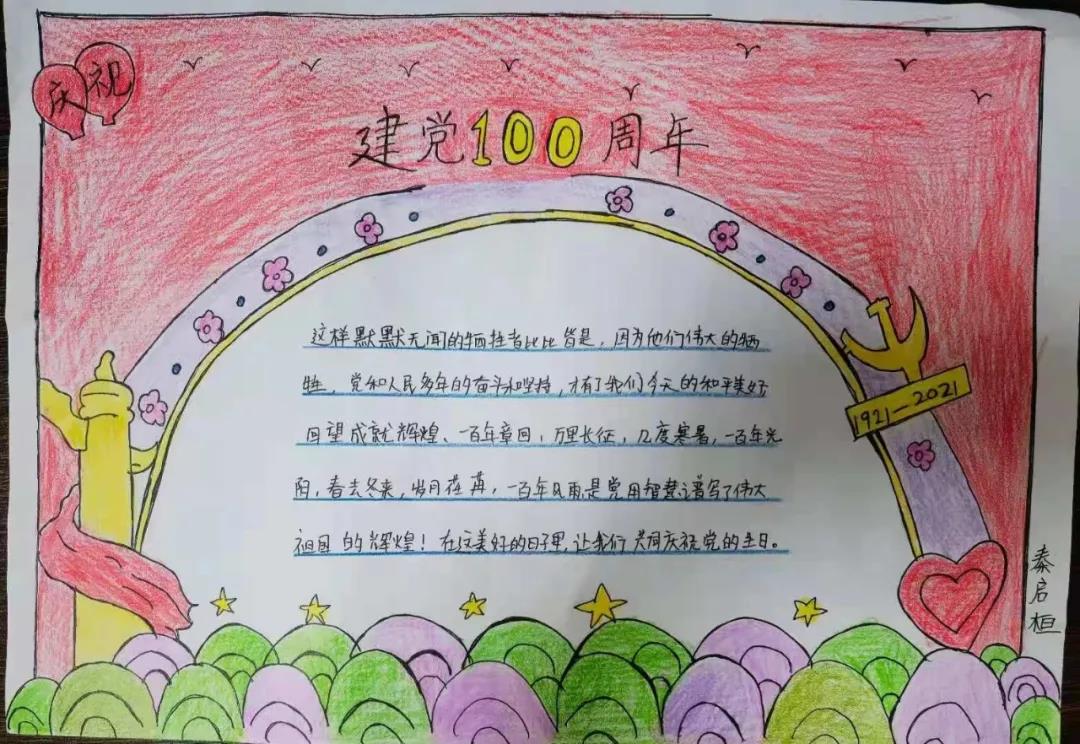 庆祝
建党100周年
这样默默无闻的牺牲者比比皆是，因为他们伟大的牺
牲，党和人民多年的奋斗和坚持，才有了我们今天的和平美好
回望成就辉煌、一百年章回，万里长征，几度寒暑，一百年光
阴，春去冬来，岁月荏苒，一百年风雨是党用智慧谱写了伟大
祖国的辉煌！在这美好的日子里，让我们共同庆祝党的生日。
1921-2021
秦启桓